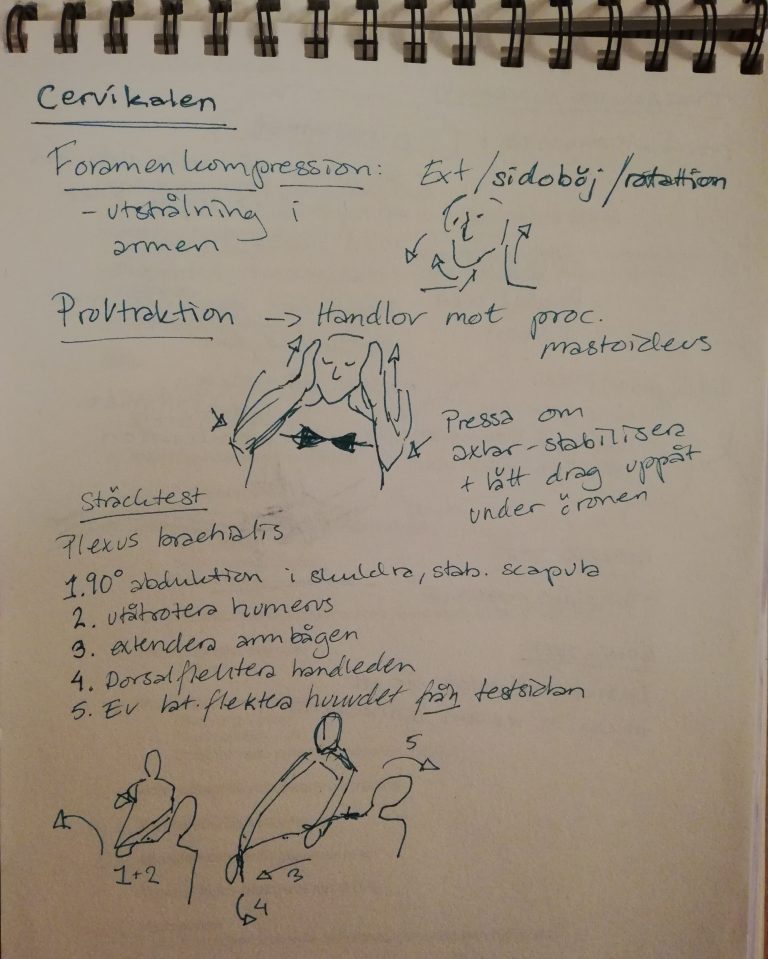 Cervikalen
Foramenkompression: Ext/sidoböj/rotattion
- utstrålning i
armen
Provtraktion -> Handlov mot proc.
mastoideus
Pressa om
axlar - stabilisera
+ lätt drag uppåt
under öronen
Sträcktest
Plexus brachialis
1. 90° abduktion i skuldra, stab. scapula
2. utåtrotera humerus
3. extendera armbågen
4. Dorsalflektera handleden
5. Ev lat. flektera huvudet från testsidan
5
1+2
3
4